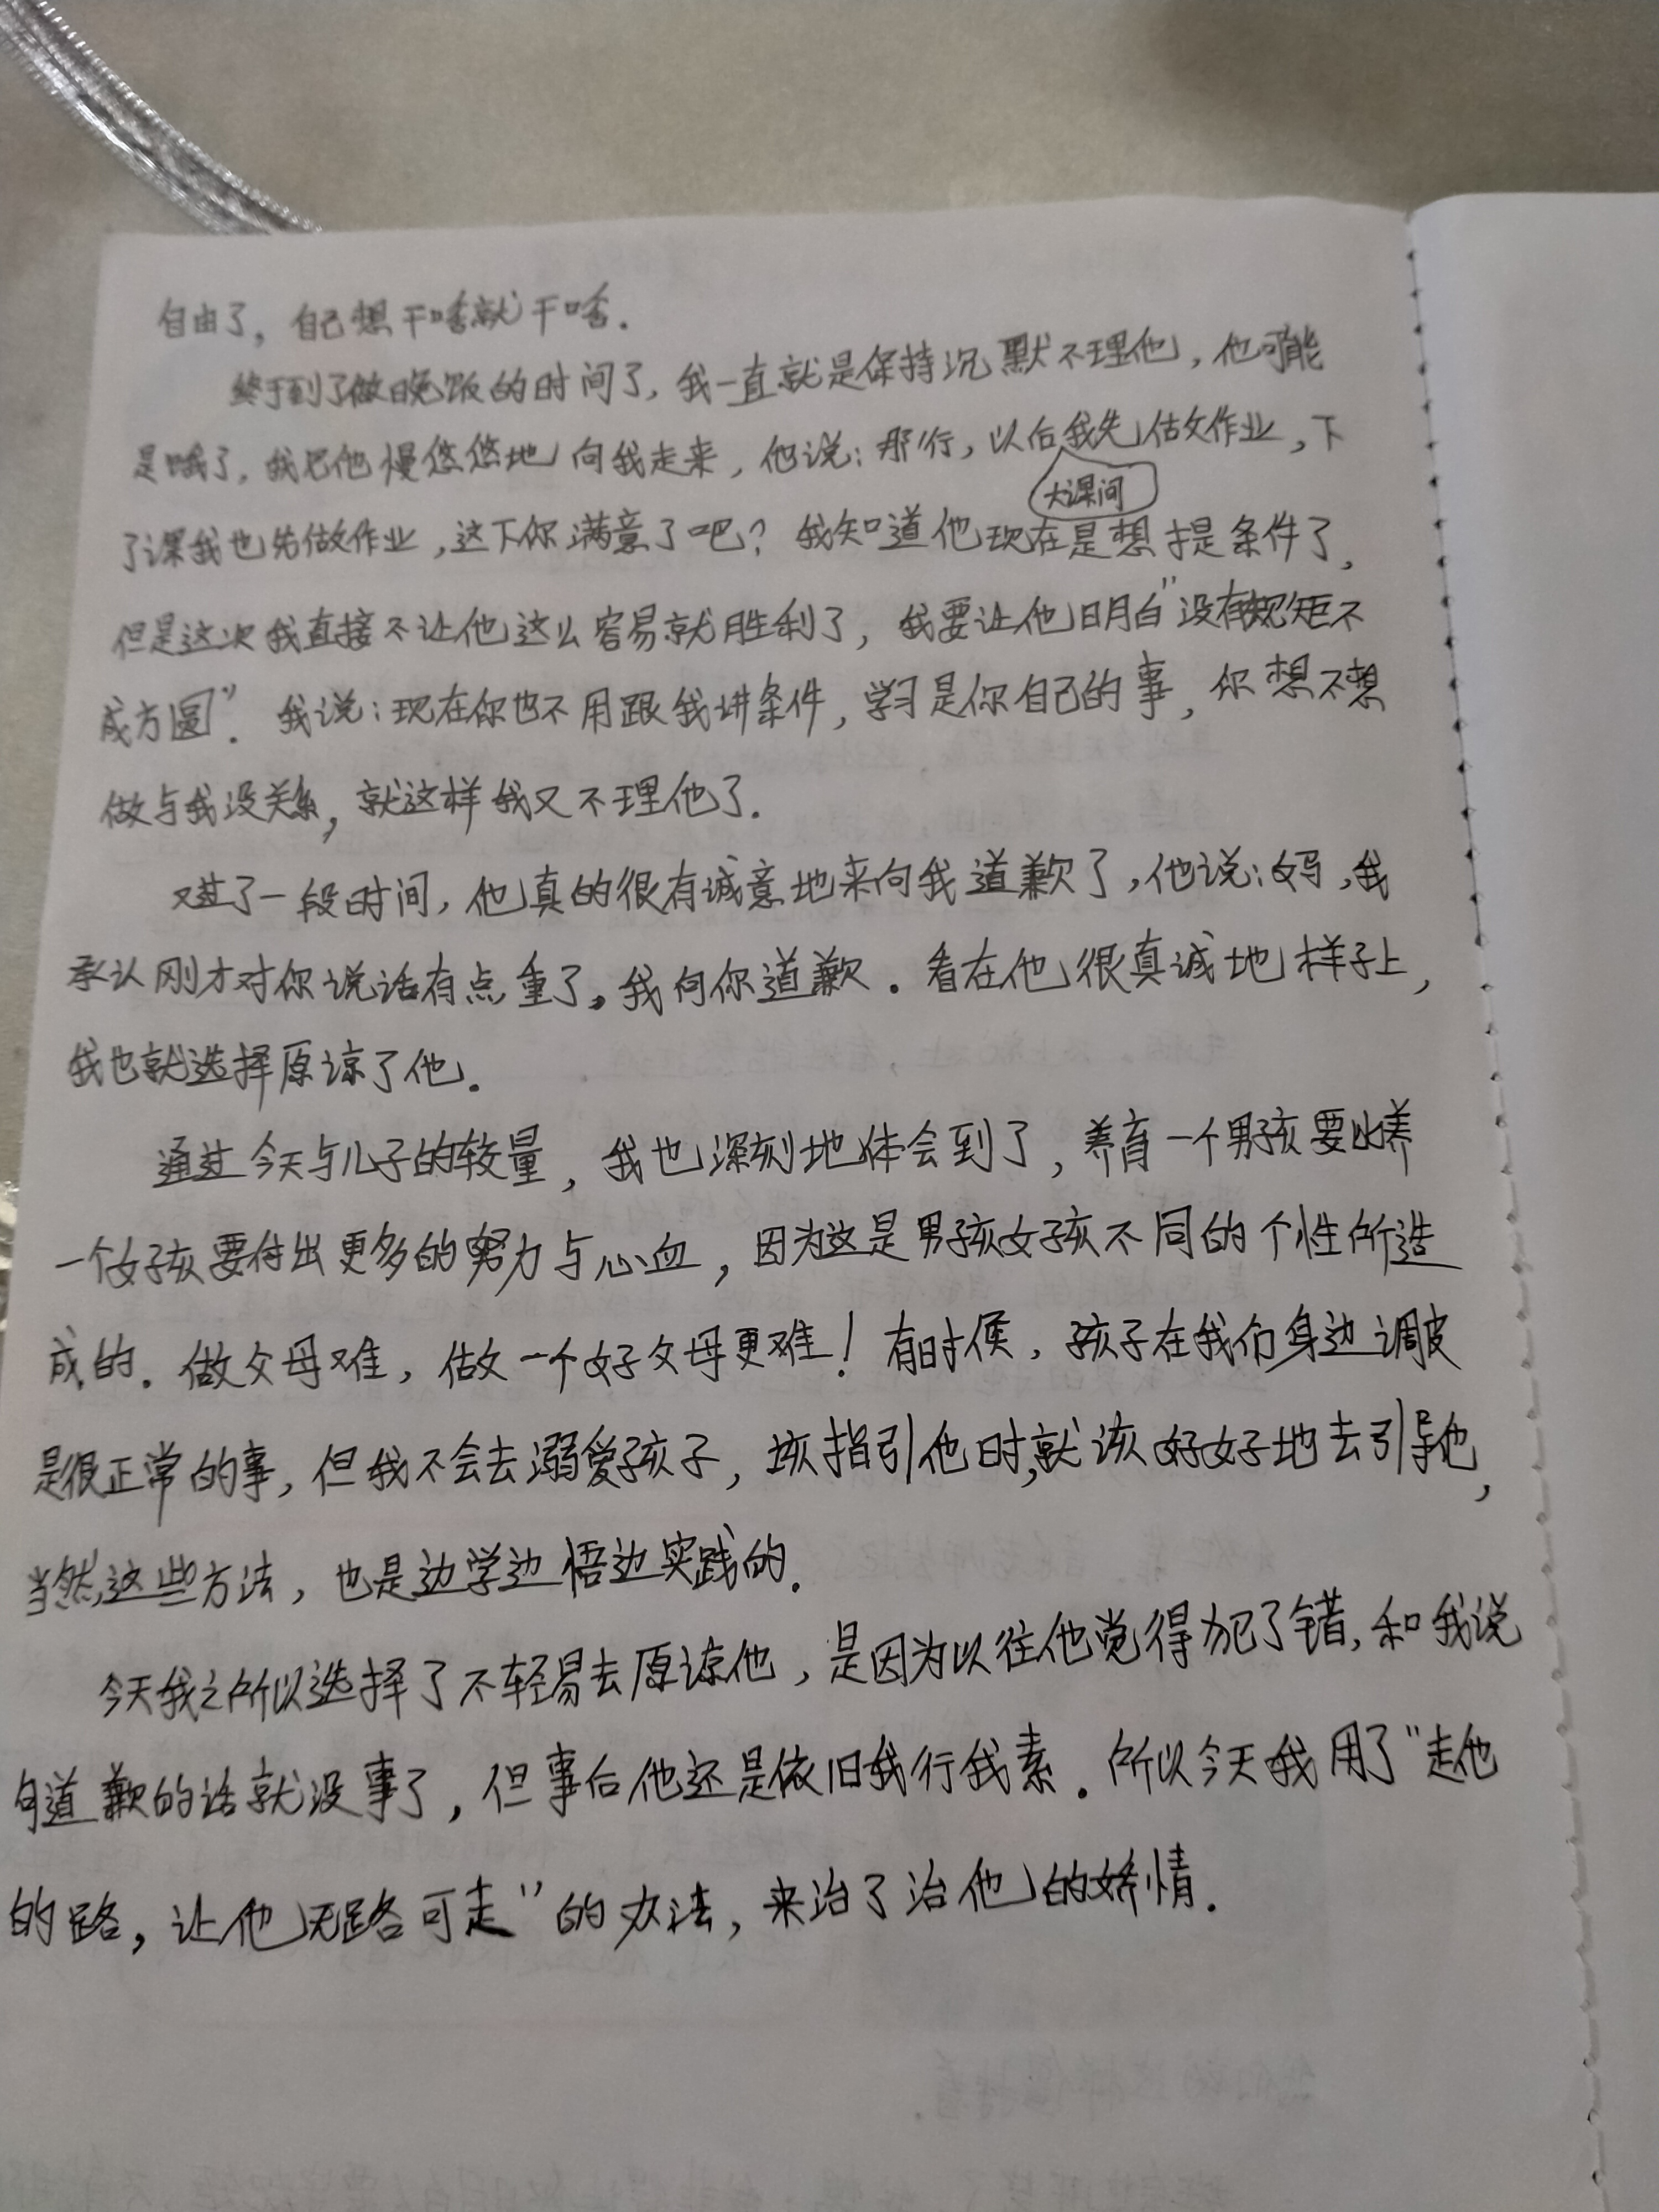 自由了，自己想干啥就干啥.
终于到了做晚饭的时间了，我一直就是保持沉默不理他，他可能
是饿了，我见他慢悠悠地向我走来，他说：那行，以后我先做作业，下
大课间
了课我也先做作业，这下你满意了吧？我知道他现在是想提条件了，
但是这次我直接不让他这么容易就胜利了，我要让他明白“没有规矩不
成方圆”．我说：现在你也不用跟我讲条件，学习是你自己的事，你想不想
做与我没关系，就这样我又不理他了．
又过了一段时间，他真的很有诚意地来向我道歉了，他说：妈，我
承认刚才对你说话有点重了。我向你道歉．看在他很真诚地样子上，
我也就选择原谅了他．
通过今天与儿子的较量，我也深刻地体会到了，养育一个男孩要比养
一个女孩要付出更多的努力与心血，因为这是男孩女孩不同的个性所造
成的．做父母难，做一个好父母更难！有时候，孩子在我们身边调皮
是很正常的事，但我不会去溺爱孩子，该指引他时，就该好好地去引导他，
当然，这些方法，也是边学边悟边实践的．
今天我之所以选择了不轻易去原谅他，是因为以往他觉得犯了错，和我说
句道歉的话就没事了，但事后他还是依旧我行我素．所以今天我用了“走他
的路，让他无路可走”的办法，来治了治他的娇情．